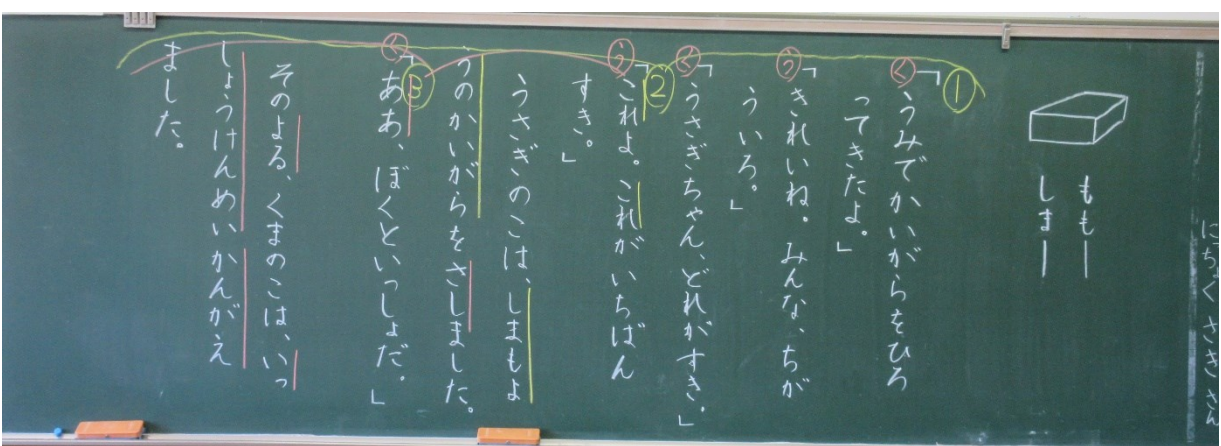 にっちょく さきさん
もも
しま
①
く「うみでかいがらをひろ
ってきたよ。」
う「きれいね。みんな、ちが
ういろ。」
く「うさぎちゃん、どれがすき。」
②
う「これよ。これがいちばん
すき。」
うさぎのこは、しまもよ
うのかいがらをさしました。
③
く「ああ、ぼくといっしょだ。」
そのよる、くまのこは、いっ
しょうけんめいかんがえ
ました。